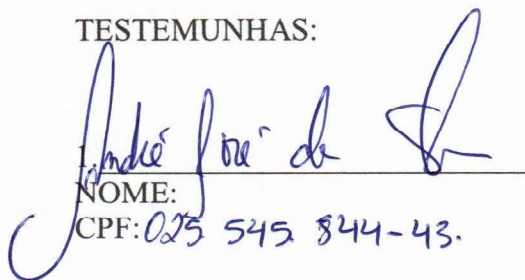 TESTEMUNHAS:
1. André José de
NOME:
CPF: 025 545 844-43.